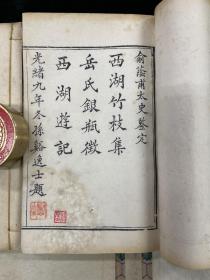 俞蔭甫太史鉴定
西湖竹枝集
岳氏銀瓶徵
西湖遊記
光緒九年冬孫谿逸士題